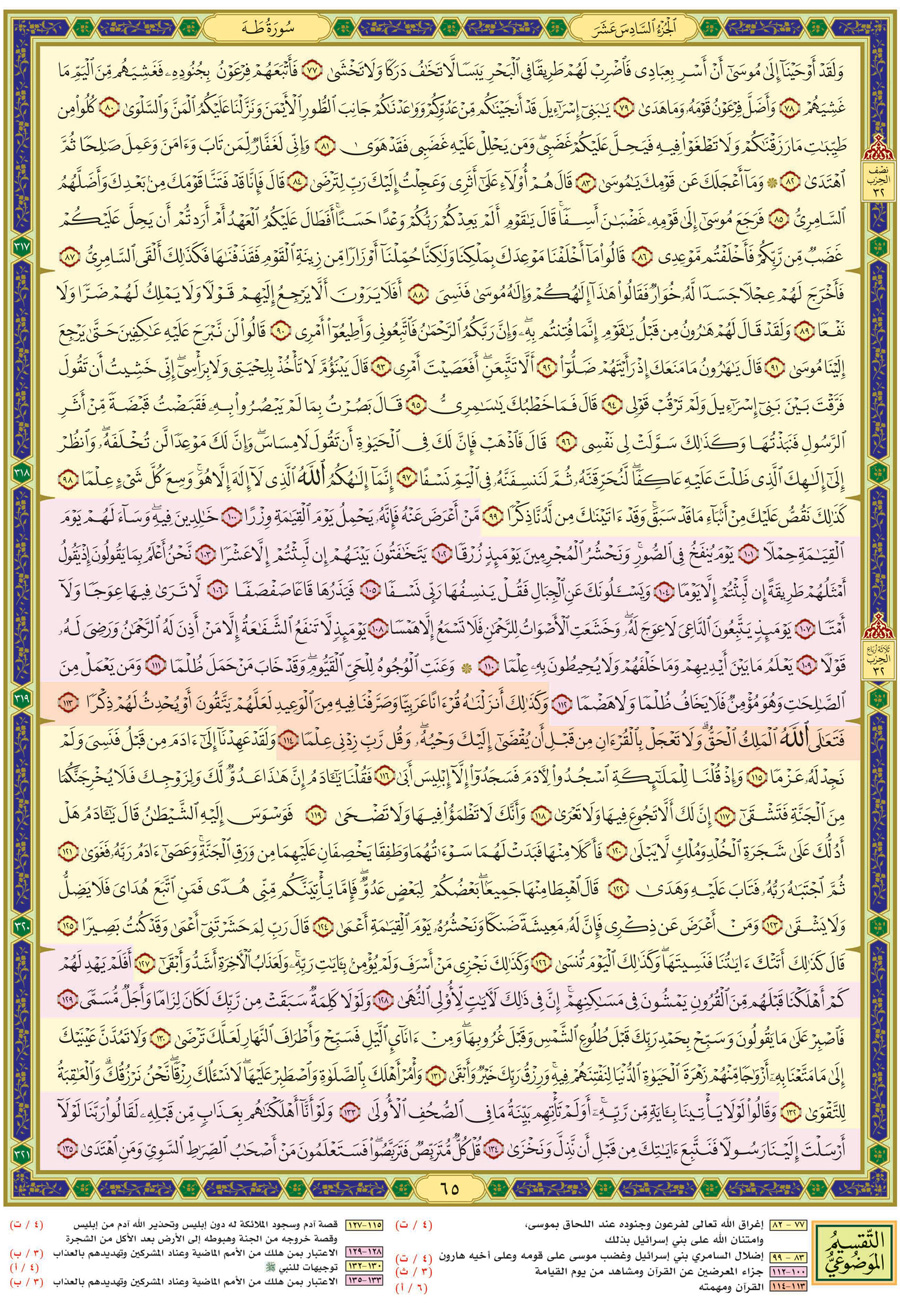 الجُزْءُ السَّادِسَ عَشَرَ
سُورَةُ طه
وَلَقَدْ أَوْحَيْنَآ إِلَىٰ مُوسَىٰٓ أَنْ أَسْرِ بِعِبَادِى فَٱضْرِبْ لَهُمْ طَرِيقًا فِى ٱلْبَحْرِ يَبَسًا لَّا تَخَٰفُ دَرَكًا وَلَا تَخْشَىٰ ٧٧ فَأَتْبَعَهُمْ فِرْعَوْنُ بِجُنُودِهِۦ فَغَشِيَهُم مِّنَ ٱلْيَمِّ مَا
غَشِيَهُمْ ٧٨ وَأَضَلَّ فِرْعَوْنُ قَوْمَهُۥ وَمَا هَدَىٰ ٧٩ يَٰبَنِىٓ إِسْرَٰٓءِيلَ قَدْ أَنجَيْنَٰكُم مِّنْ عَدُوِّكُمْ وَوَٰعَدْنَٰكُمْ جَانِبَ ٱلطُّورِ ٱلْأَيْمَنَ وَنَزَّلْنَا عَلَيْكُمُ ٱلْمَنَّ وَٱلسَّلْوَىٰ ٨٠ كُلُوا۟ مِن
طَيِّبَٰتِ مَا رَزَقْنَٰكُمْ وَلَا تَطْغَوْا۟ فِيهِ فَيَحِلَّ عَلَيْكُمْ غَضَبِى ۖ وَمَن يَحْلِلْ عَلَيْهِ غَضَبِى فَقَدْ هَوَىٰ ٨١ وَإِنِّى لَغَفَّارٌ لِّمَن تَابَ وَءَامَنَ وَعَمِلَ صَٰلِحًا ثُمَّ
ٱهْتَدَىٰ ٨٢ ۞ وَمَآ أَعْجَلَكَ عَن قَوْمِكَ يَٰمُوسَىٰ ٨٣ قَالَ هُمْ أُو۟لَآءِ عَلَىٰٓ أَثَرِى وَعَجِلْتُ إِلَيْكَ رَبِّ لِتَرْضَىٰ ٨٤ قَالَ فَإِنَّا قَدْ فَتَنَّا قَوْمَكَ مِنۢ بَعْدِكَ وَأَضَلَّهُمُ
ٱلسَّامِرِىُّ ٨٥ فَرَجَعَ مُوسَىٰٓ إِلَىٰ قَوْمِهِۦ غَضْبَٰنَ أَسِفًا ۚ قَالَ يَٰقَوْمِ أَلَمْ يَعِدْكُمْ رَبُّكُمْ وَعْدًا حَسَنًا ۚ أَفَطَالَ عَلَيْكُمُ ٱلْعَهْدُ أَمْ أَرَدتُّمْ أَن يَحِلَّ عَلَيْكُمْ
غَضَبٌ مِّن رَّبِّكُمْ فَأَخْلَفْتُم مَّوْعِدِى ٨٦ قَالُوا۟ مَآ أَخْلَفْنَا مَوْعِدَكَ بِمَلْكِنَا وَلَٰكِنَّا حُمِّلْنَآ أَوْزَارًا مِّن زِينَةِ ٱلْقَوْمِ فَقَذَفْنَٰهَا فَكَذَٰلِكَ أَلْقَى ٱلسَّامِرِىُّ ٨٧
فَأَخْرَجَ لَهُمْ عِجْلًا جَسَدًا لَّهُۥ خُوَارٌ فَقَالُوا۟ هَٰذَآ إِلَٰهُكُمْ وَإِلَٰهُ مُوسَىٰ فَنَسِىَ ٨٨ أَفَلَا يَرَوْنَ أَلَّا يَرْجِعُ إِلَيْهِمْ قَوْلًا وَلَا يَمْلِكُ لَهُمْ ضَرًّا وَلَا
نَفْعًا ٨٩ وَلَقَدْ قَالَ لَهُمْ هَٰرُونُ مِن قَبْلُ يَٰقَوْمِ إِنَّمَا فُتِنتُم بِهِۦ ۖ وَإِنَّ رَبَّكُمُ ٱلرَّحْمَٰنُ فَٱتَّبِعُونِى وَأَطِيعُوٓا۟ أَمْرِى ٩٠ قَالُوا۟ لَن نَّبْرَحَ عَلَيْهِ عَٰكِفِينَ حَتَّىٰ يَرْجِعَ
إِلَيْنَا مُوسَىٰ ٩١ قَالَ يَٰهَٰرُونُ مَا مَنَعَكَ إِذْ رَأَيْتَهُمْ ضَلُّوٓا۟ ٩٢ أَلَّا تَتَّبِعَنِ ۖ أَفَعَصَيْتَ أَمْرِى ٩٣ قَالَ يَبْنَؤُمَّ لَا تَأْخُذْ بِلِحْيَتِى وَلَا بِرَأْسِىٓ ۖ إِنِّى خَشِيتُ أَن تَقُولَ
فَرَّقْتَ بَيْنَ بَنِىٓ إِسْرَٰٓءِيلَ وَلَمْ تَرْقُبْ قَوْلِى ٩٤ قَالَ فَمَا خَطْبُكَ يَٰسَٰمِرِىُّ ٩٥ قَالَ بَصُرْتُ بِمَا لَمْ يَبْصُرُوا۟ بِهِۦ فَقَبَضْتُ قَبْضَةً مِّنْ أَثَرِ
ٱلرَّسُولِ فَنَبَذْتُهَا وَكَذَٰلِكَ سَوَّلَتْ لِى نَفْسِى ٩٦ قَالَ فَٱذْهَبْ فَإِنَّ لَكَ فِى ٱلْحَيَوٰةِ أَن تَقُولَ لَا مِسَاسَ ۖ وَإِنَّ لَكَ مَوْعِدًا لَّن تُخْلَفَهُۥ ۖ وَٱنظُرْ
إِلَىٰٓ إِلَٰهِكَ ٱلَّذِى ظَلْتَ عَلَيْهِ عَاكِفًا ۖ لَّنُحَرِّقَنَّهُۥ ثُمَّ لَنَنسِفَنَّهُۥ فِى ٱلْيَمِّ نَسْفًا ٩٧ إِنَّمَآ إِلَٰهُكُمُ ٱللَّهُ ٱلَّذِى لَآ إِلَٰهَ إِلَّا هُوَ ۚ وَسِعَ كُلَّ شَىْءٍ عِلْمًا ٩٨
كَذَٰلِكَ نَقُصُّ عَلَيْكَ مِنْ أَنۢبَآءِ مَا قَدْ سَبَقَ ۚ وَقَدْ ءَاتَيْنَٰكَ مِن لَّدُنَّا ذِكْرًا ٩٩ مَّنْ أَعْرَضَ عَنْهُ فَإِنَّهُۥ يَحْمِلُ يَوْمَ ٱلْقِيَٰمَةِ وِزْرًا ١٠٠ خَٰلِدِينَ فِيهِ ۖ وَسَآءَ لَهُمْ يَوْمَ
ٱلْقِيَٰمَةِ حِمْلًا ١٠١ يَوْمَ يُنفَخُ فِى ٱلصُّورِ ۚ وَنَحْشُرُ ٱلْمُجْرِمِينَ يَوْمَئِذٍ زُرْقًا ١٠٢ يَتَخَٰفَتُونَ بَيْنَهُمْ إِن لَّبِثْتُمْ إِلَّا عَشْرًا ١٠٣ نَّحْنُ أَعْلَمُ بِمَا يَقُولُونَ إِذْ يَقُولُ
أَمْثَلُهُمْ طَرِيقَةً إِن لَّبِثْتُمْ إِلَّا يَوْمًا ١٠٤ وَيَسْـَٔلُونَكَ عَنِ ٱلْجِبَالِ فَقُلْ يَنسِفُهَا رَبِّى نَسْفًا ١٠٥ فَيَذَرُهَا قَاعًا صَفْصَفًا ١٠٦ لَّا تَرَىٰ فِيهَا عِوَجًا وَلَآ
أَمْتًا ١٠٧ يَوْمَئِذٍ يَتَّبِعُونَ ٱلدَّاعِىَ لَا عِوَجَ لَهُۥ ۖ وَخَشَعَتِ ٱلْأَصْوَاتُ لِلرَّحْمَٰنِ فَلَا تَسْمَعُ إِلَّا هَمْسًا ١٠٨ يَوْمَئِذٍ لَّا تَنفَعُ ٱلشَّفَٰعَةُ إِلَّا مَنْ أَذِنَ لَهُ ٱلرَّحْمَٰنُ وَرَضِىَ لَهُۥ
قَوْلًا ١٠٩ يَعْلَمُ مَا بَيْنَ أَيْدِيهِمْ وَمَا خَلْفَهُمْ وَلَا يُحِيطُونَ بِهِۦ عِلْمًا ١١٠ ۞ وَعَنَتِ ٱلْوُجُوهُ لِلْحَىِّ ٱلْقَيُّومِ ۖ وَقَدْ خَابَ مَنْ حَمَلَ ظُلْمًا ١١١ وَمَن يَعْمَلْ مِنَ
ٱلصَّٰلِحَٰتِ وَهُوَ مُؤْمِنٌ فَلَا يَخَافُ ظُلْمًا وَلَا هَضْمًا ١١٢ وَكَذَٰلِكَ أَنزَلْنَٰهُ قُرْءَانًا عَرَبِيًّا وَصَرَّفْنَا فِيهِ مِنَ ٱلْوَعِيدِ لَعَلَّهُمْ يَتَّقُونَ أَوْ يُحْدِثُ لَهُمْ ذِكْرًا ١١٣
فَتَعَٰلَى ٱللَّهُ ٱلْمَلِكُ ٱلْحَقُّ ۗ وَلَا تَعْجَلْ بِٱلْقُرْءَانِ مِن قَبْلِ أَن يُقْضَىٰٓ إِلَيْكَ وَحْيُهُۥ ۖ وَقُل رَّبِّ زِدْنِى عِلْمًا ١١٤ وَلَقَدْ عَهِدْنَآ إِلَىٰٓ ءَادَمَ مِن قَبْلُ فَنَسِىَ وَلَمْ
نَجِدْ لَهُۥ عَزْمًا ١١٥ وَإِذْ قُلْنَا لِلْمَلَٰٓئِكَةِ ٱسْجُدُوا۟ لِءَادَمَ فَسَجَدُوٓا۟ إِلَّآ إِبْلِيسَ أَبَىٰ ١١٦ فَقُلْنَا يَٰٓـَٔادَمُ إِنَّ هَٰذَا عَدُوٌّ لَّكَ وَلِزَوْجِكَ فَلَا يُخْرِجَنَّكُمَا
مِنَ ٱلْجَنَّةِ فَتَشْقَىٰٓ ١١٧ إِنَّ لَكَ أَلَّا تَجُوعَ فِيهَا وَلَا تَعْرَىٰ ١١٨ وَأَنَّكَ لَا تَظْمَؤُا۟ فِيهَا وَلَا تَضْحَىٰ ١١٩ فَوَسْوَسَ إِلَيْهِ ٱلشَّيْطَٰنُ قَالَ يَٰٓـَٔادَمُ هَلْ
أَدُلُّكَ عَلَىٰ شَجَرَةِ ٱلْخُلْدِ وَمُلْكٍ لَّا يَبْلَىٰ ١٢٠ فَأَكَلَا مِنْهَا فَبَدَتْ لَهُمَا سَوْءَٰتُهُمَا وَطَفِقَا يَخْصِفَانِ عَلَيْهِمَا مِن وَرَقِ ٱلْجَنَّةِ ۚ وَعَصَىٰٓ ءَادَمُ رَبَّهُۥ فَغَوَىٰ ١٢١
ثُمَّ ٱجْتَبَٰهُ رَبُّهُۥ فَتَابَ عَلَيْهِ وَهَدَىٰ ١٢٢ قَالَ ٱهْبِطَا مِنْهَا جَمِيعًۢا ۖ بَعْضُكُمْ لِبَعْضٍ عَدُوٌّ ۖ فَإِمَّا يَأْتِيَنَّكُم مِّنِّى هُدًى فَمَنِ ٱتَّبَعَ هُدَاىَ فَلَا يَضِلُّ
وَلَا يَشْقَىٰ ١٢٣ وَمَنْ أَعْرَضَ عَن ذِكْرِى فَإِنَّ لَهُۥ مَعِيشَةً ضَنكًا وَنَحْشُرُهُۥ يَوْمَ ٱلْقِيَٰمَةِ أَعْمَىٰ ١٢٤ قَالَ رَبِّ لِمَ حَشَرْتَنِىٓ أَعْمَىٰ وَقَدْ كُنتُ بَصِيرًا ١٢٥
قَالَ كَذَٰلِكَ أَتَتْكَ ءَايَٰتُنَا فَنَسِيتَهَا ۖ وَكَذَٰلِكَ ٱلْيَوْمَ تُنسَىٰ ١٢٦ وَكَذَٰلِكَ نَجْزِى مَنْ أَسْرَفَ وَلَمْ يُؤْمِنۢ بِـَٔايَٰتِ رَبِّهِۦ ۚ وَلَعَذَابُ ٱلْـَٔاخِرَةِ أَشَدُّ وَأَبْقَىٰٓ ١٢٧ أَفَلَمْ يَهْدِ لَهُمْ
كَمْ أَهْلَكْنَا قَبْلَهُم مِّنَ ٱلْقُرُونِ يَمْشُونَ فِى مَسَٰكِنِهِمْ ۗ إِنَّ فِى ذَٰلِكَ لَـَٔايَٰتٍ لِّأُو۟لِى ٱلنُّهَىٰ ١٢٨ وَلَوْلَا كَلِمَةٌ سَبَقَتْ مِن رَّبِّكَ لَكَانَ لِزَامًا وَأَجَلٌ مُّسَمًّى ١٢٩
فَٱصْبِرْ عَلَىٰ مَا يَقُولُونَ وَسَبِّحْ بِحَمْدِ رَبِّكَ قَبْلَ طُلُوعِ ٱلشَّمْسِ وَقَبْلَ غُرُوبِهَا ۖ وَمِنْ ءَانَآئِ ٱلَّيْلِ فَسَبِّحْ وَأَطْرَافَ ٱلنَّهَارِ لَعَلَّكَ تَرْضَىٰ ١٣٠ وَلَا تَمُدَّنَّ عَيْنَيْكَ
إِلَىٰ مَا مَتَّعْنَا بِهِۦٓ أَزْوَٰجًا مِّنْهُمْ زَهْرَةَ ٱلْحَيَوٰةِ ٱلدُّنْيَا لِنَفْتِنَهُمْ فِيهِ ۚ وَرِزْقُ رَبِّكَ خَيْرٌ وَأَبْقَىٰ ١٣١ وَأْمُرْ أَهْلَكَ بِٱلصَّلَوٰةِ وَٱصْطَبِرْ عَلَيْهَا ۖ لَا نَسْـَٔلُكَ رِزْقًا ۖ نَّحْنُ نَرْزُقُكَ ۗ وَٱلْعَٰقِبَةُ
لِلتَّقْوَىٰ ١٣٢ وَقَالُوا۟ لَوْلَا يَأْتِينَا بِـَٔايَةٍ مِّن رَّبِّهِۦٓ ۚ أَوَلَمْ تَأْتِهِم بَيِّنَةُ مَا فِى ٱلصُّحُفِ ٱلْأُولَىٰ ١٣٣ وَلَوْ أَنَّآ أَهْلَكْنَٰهُم بِعَذَابٍ مِّن قَبْلِهِۦ لَقَالُوا۟ رَبَّنَا لَوْلَآ
أَرْسَلْتَ إِلَيْنَا رَسُولًا فَنَتَّبِعَ ءَايَٰتِكَ مِن قَبْلِ أَن نَّذِلَّ وَنَخْزَىٰ ١٣٤ قُلْ كُلٌّ مُّتَرَبِّصٌ فَتَرَبَّصُوا۟ ۖ فَسَتَعْلَمُونَ مَنْ أَصْحَٰبُ ٱلصِّرَٰطِ ٱلسَّوِىِّ وَمَنِ ٱهْتَدَىٰ ١٣٥
نصف الحزب ٣٢
ثلاثة أرباع الحزب ٣٢
٣١٧
٣١٨
٣١٩
٣٢٠
٣٢١
٦٥
التَّقسِيمُ المَوضُوعِيُّ
٧٧-٨٢ إغراق الله تعالى لفرعون وجنوده عند اللحاق بموسى، (٤ / ت)
وامتنان الله على بني إسرائيل بذلك
٨٣-٩٩ إضلال السامري بني إسرائيل وغضب موسى على قومه وعلى أخيه هارون (٤ / ت)
١٠٠-١١٢ جزاء المعرضين عن القرآن ومشاهد من يوم القيامة (٣ / ث)
١١٣-١١٤ القرآن ومهمته (٦ / أ)
١١٥-١٢٧ قصة آدم وسجود الملائكة له دون إبليس وتحذير الله آدم من إبليس (٤ / ت)
وقصة خروجه من الجنة وهبوطه إلى الأرض بعد الأكل من الشجرة
١٢٨-١٢٩ الاعتبار بمن هلك من الأمم الماضية وعناد المشركين وتهديدهم بالعذاب (٣ / ب)
١٣٠-١٣٢ توجيهات للنبي ﷺ (٤ / أ)
١٣٣-١٣٥ الاعتبار بمن هلك من الأمم الماضية وعناد المشركين وتهديدهم بالعذاب (٣ / ب)